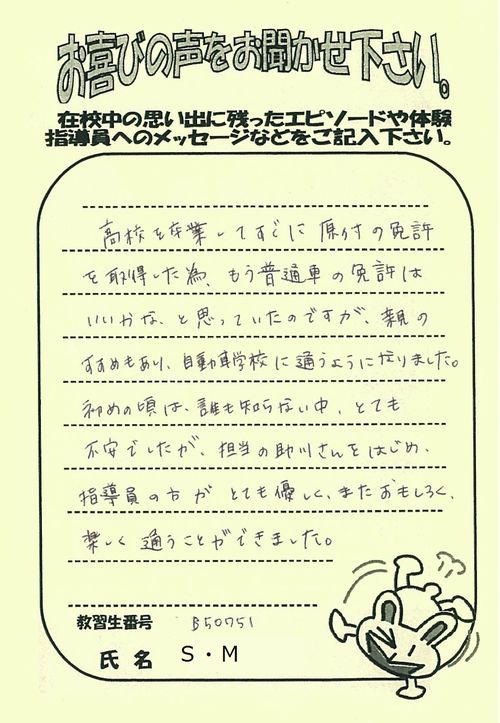 お喜びの声をお聞かせ下さい。
在校中の思い出に残ったエピソードや体験
指導員へのメッセージなどをご記入下さい。
高校を卒業してすぐに原付の免許
を取得した為、もう普通車の免許は
いいかな、と思っていたのですが、親の
すすめもあり、自動車学校に通うようになりました。
初めの頃は、誰も知らない中、とても
不安でしたが、担当の助川さんをはじめ、
指導員の方がとても優しく、またおもしろく、
楽しく通うことができました。
教習生番号 B50751
氏名 S・M